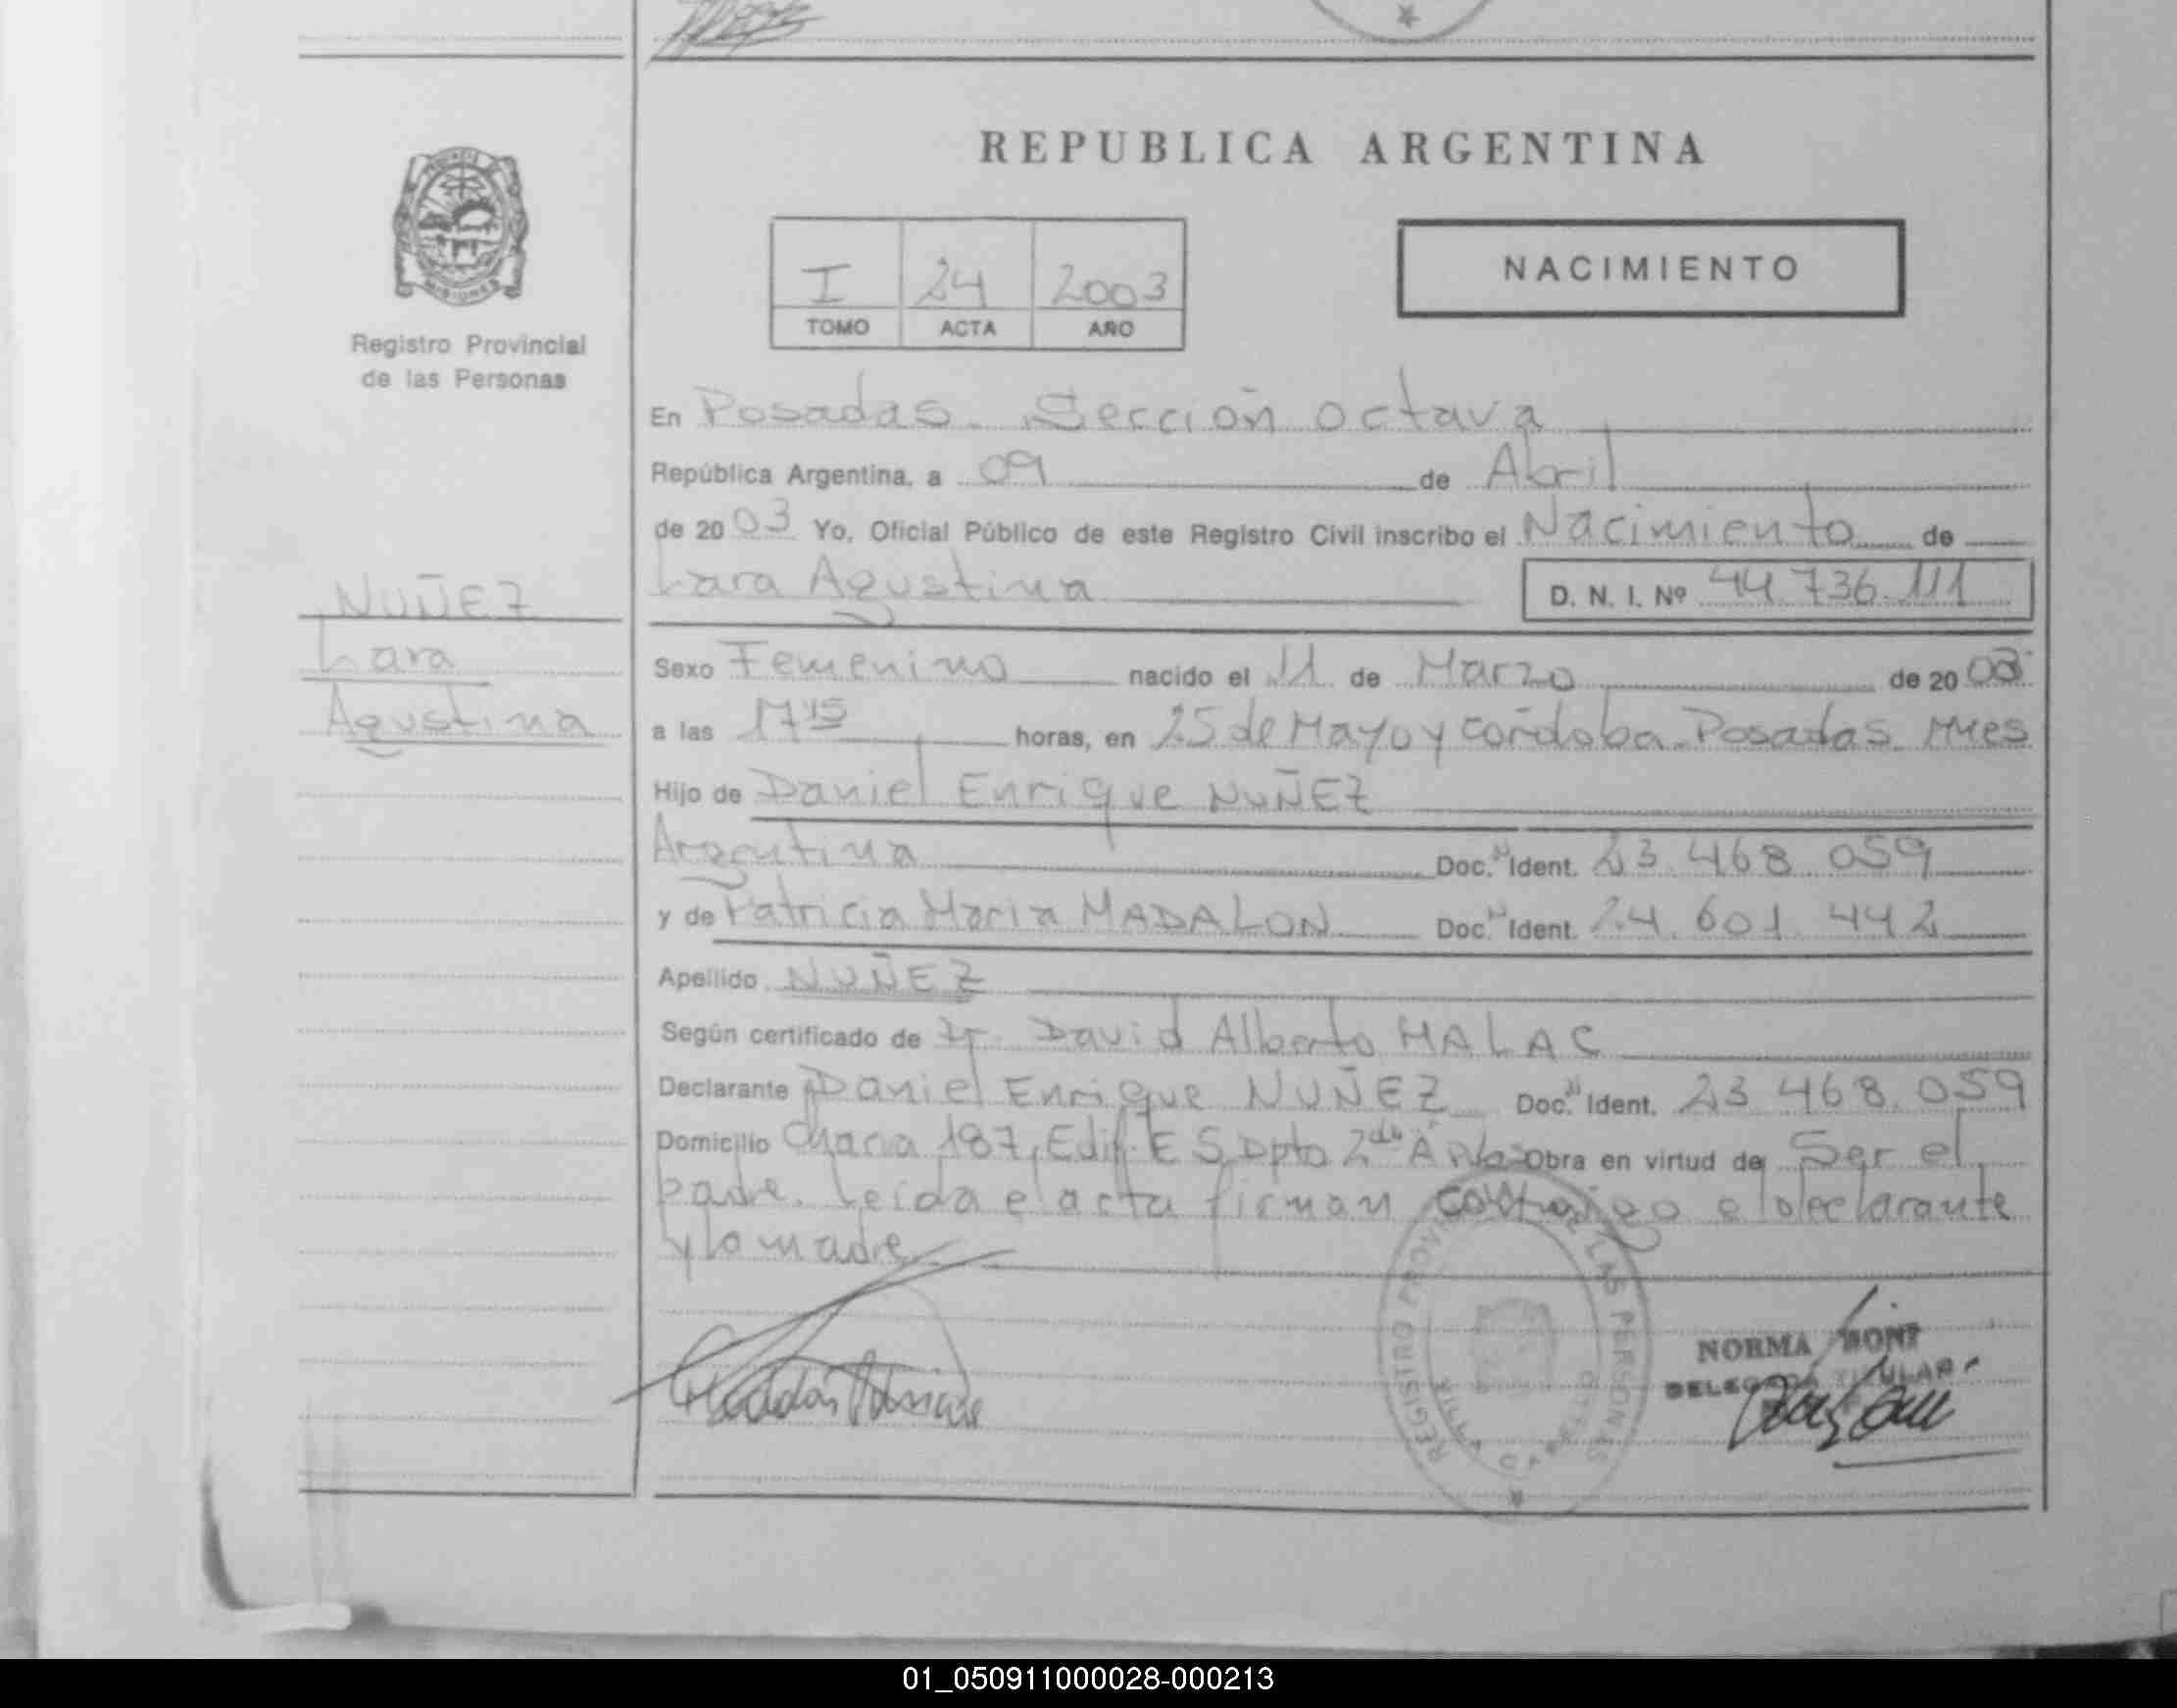 REPUBLICA ARGENTINA
MISIONES
Registro Provincial
de las Personas
I 24 2003
TOMO ACTA AÑO
NACIMIENTO
En Posadas - Sección octava
República Argentina, a 09 de Abril
de 2003 Yo, Oficial Público de este Registro Civil inscribo el Nacimiento de
Lara Agustina D. N. I. Nº 44.736.111
NUÑEZ
Lara
Agustina
Sexo Femenino nacido el 11 de Marzo de 2003
a las 17 45 horas, en 25 de Mayo y Cordoba - Posadas Mnes
Hijo de Daniel Enrique NUÑEZ
Argentina Doc. N Ident. 23.468.059
y de Patricia Maria MADALON Doc. N Ident. 24.601.442
Apellido NUÑEZ
Según certificado de Dr. David Alberto MALAC
Declarante Daniel Enrique NUÑEZ Doc. N Ident. 23.468.059
Domicilio 187, Edif. E 5 Dpto 2 A Obra en virtud de Ser el
padre. Leida el acta firman conmigo el declarante
y la madre
REGISTRO PROVINCIAL DE LAS PERSONAS
NORMA BONI
DELEGADA TITULAR
01_050911000028-000213